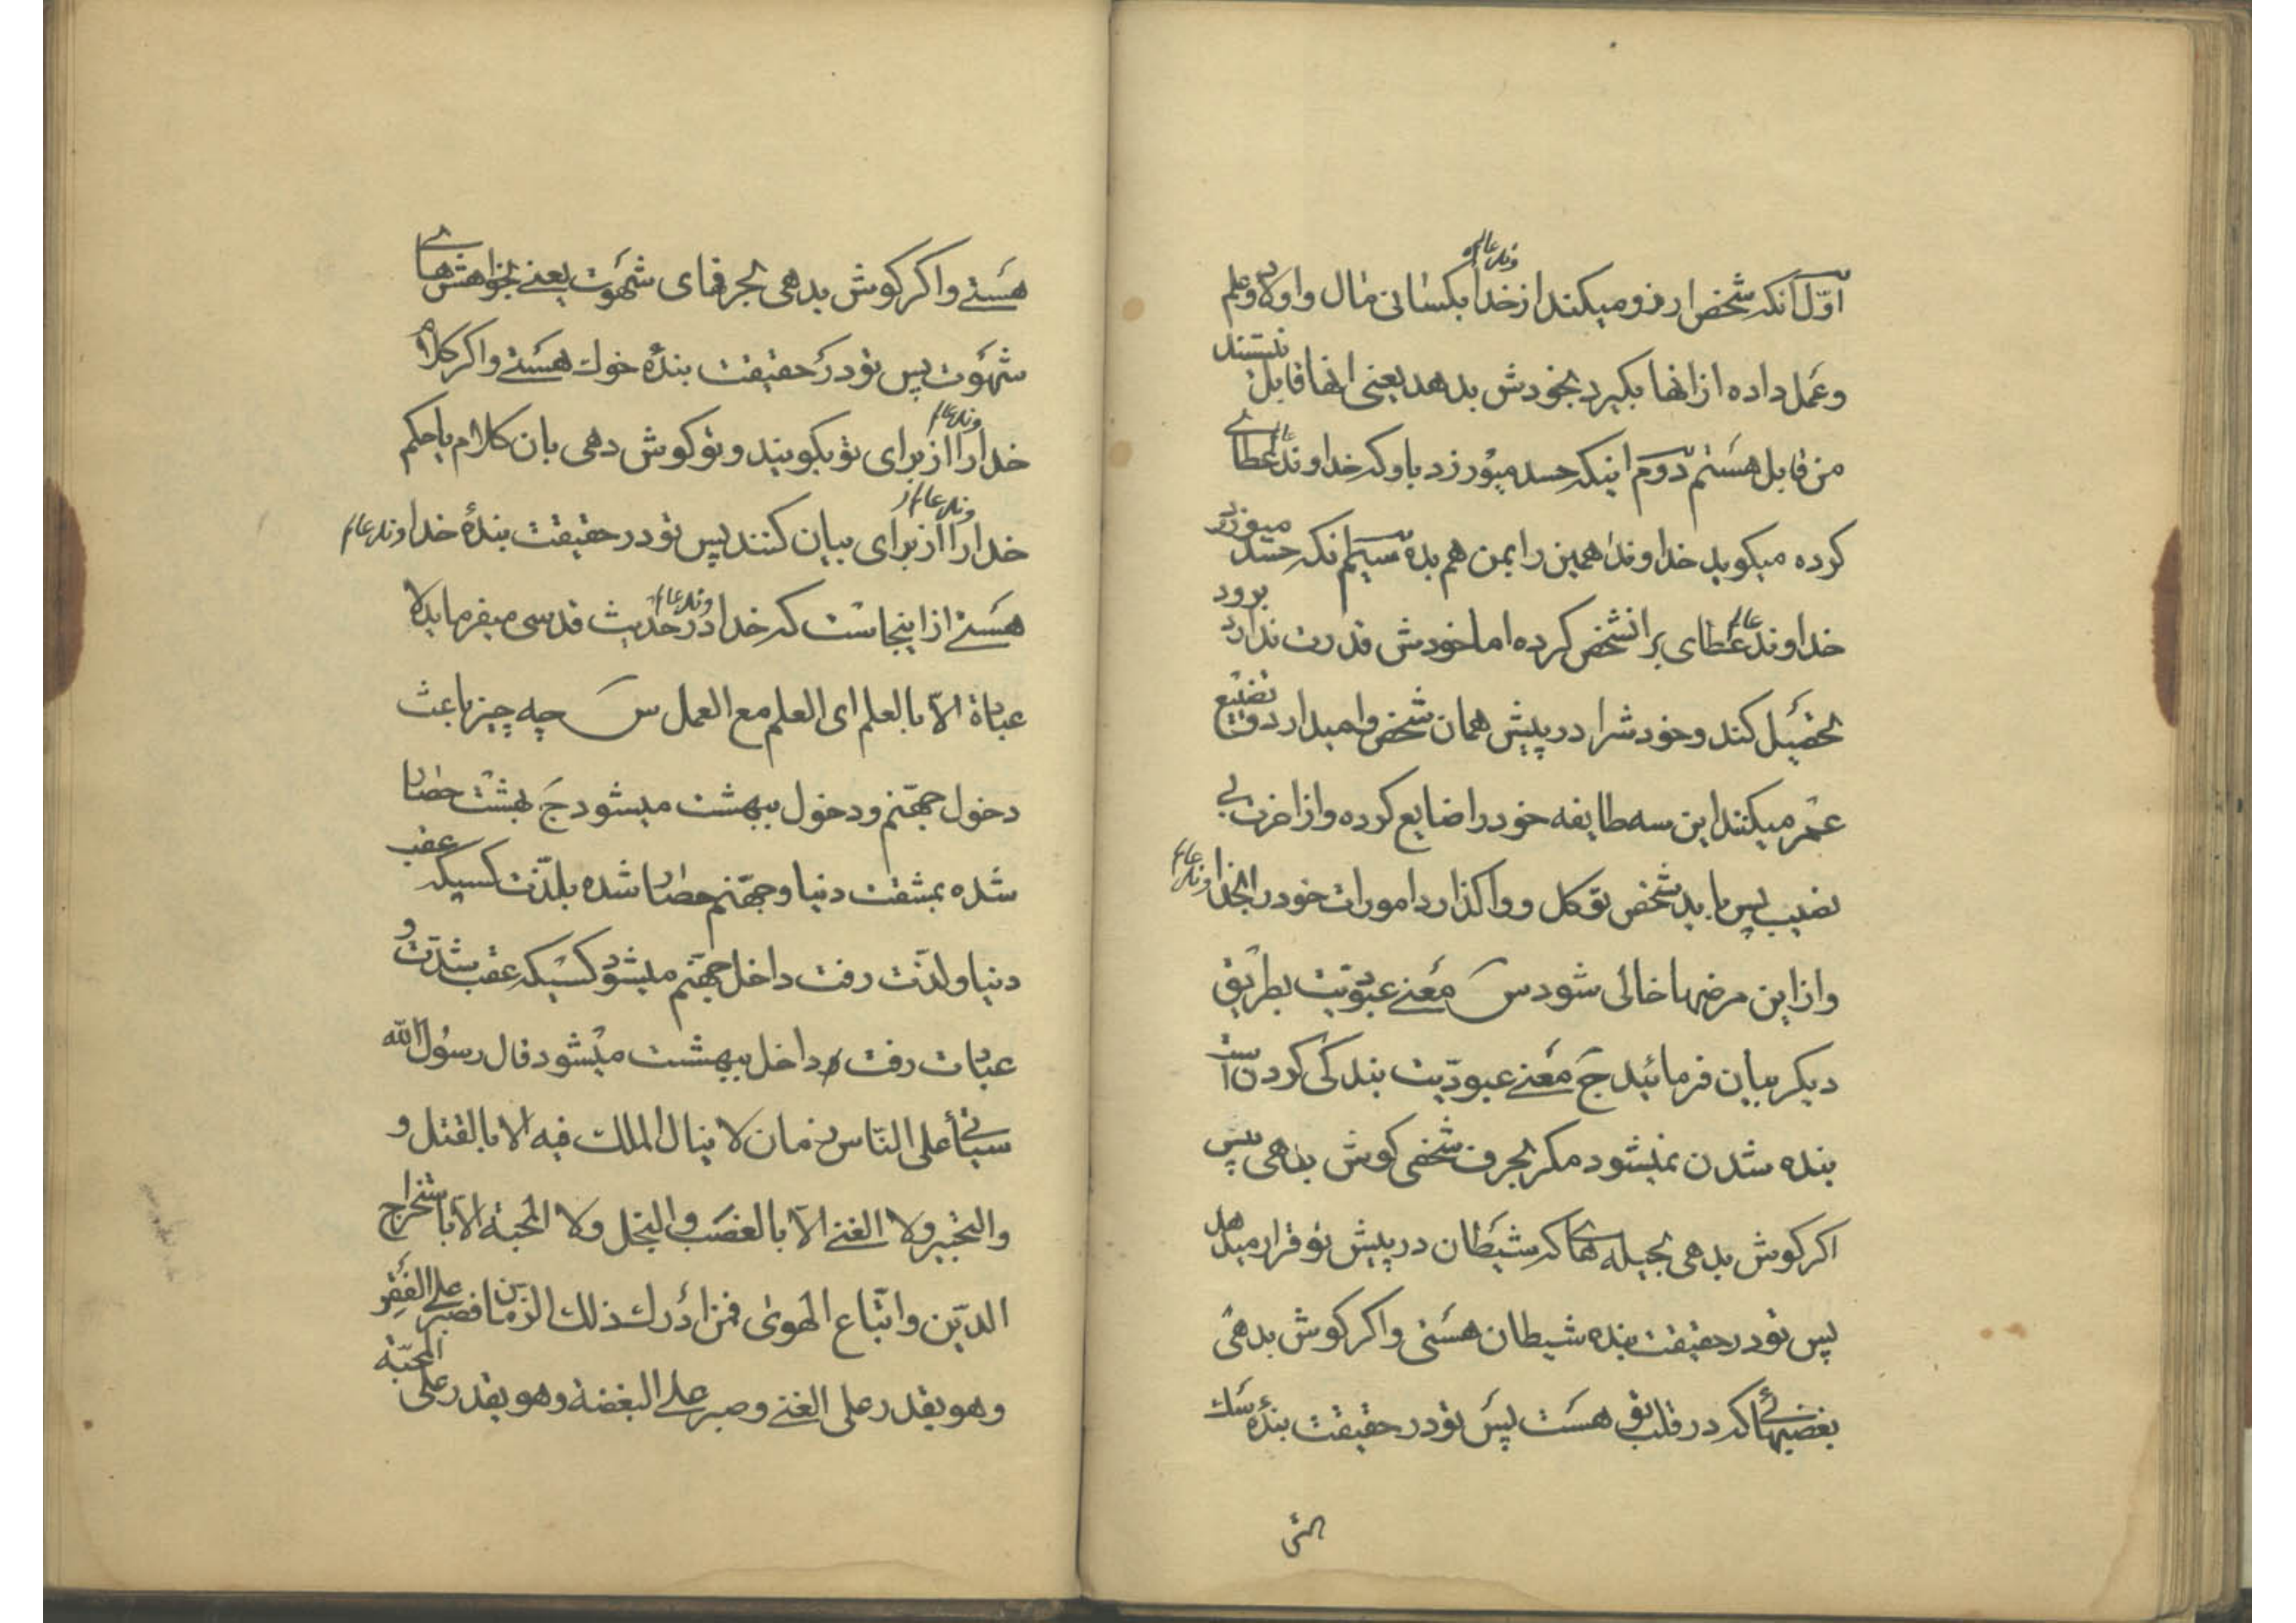 اوّل آنکه شخص ارزو میکند از خداوند عالم بکسانی مال و اولاد و علم
و عمل داده از انها بکیرد بخودش بدهد یعنی انها قابل نیستند
من قابل هستم دوّم اینکه حسد میورزد باو که خداوند عالم عطائے
کرده میکوید خداوندا همین را بمن هم بده سیّم انکه حسد میورزد
خداوند عالم عطای بر انشخص کرده اما خودش قدرت ندارد برود
تحصیل کند و خودش را در پیش همان شخص وامیدارد و تضییع
عمر میکند این سه طایفه خود را ضایع کرده و از اخرت بی
نصیب پس باید شخص توکل و واکذارد امورات خود را بخداوند عالم
و از این مرضها خالی شود س معنے عبودیّت بطریق
دیکر بیان فرمائید ج معنے عبودیّت بندکی کردن است
بنده شدن نمیشود مکر بحرف شخصی کوش بدهی پس
اکر کوش بدهی بحیله هائے که شیطان در پیش تو قرار میدهد
پس تو در حقیقت بنده شیطان هستی و اکر کوش بدهی
بغضبهائے که در قلب تو هست پس تو در حقیقت بندۀ سک
هستے و اکر کوش بدهی بحرفهای شهوت یعنے بخواهش هائے
شهوت پس تو در حقیقت بندۀ خوك هستے و اکر کلام
خداوند عالم را از برای تو بکویند و تو کوش دهی بان کلام یا حکم
خداوند عالم را از برای بیان کنند پس تو در حقیقت بندۀ خداوند عالم
هستے از اینجاست که خداوند عالم در حدیث قدسی میفرماید لا
عبادة الّا بالعلم ای العلم مع العمل س چه چیز باعث
دخول جهنّم و دخول ببهشت میشود ج بهشت حصار
شده بمشقت دنیا و جهنّم حصار شده بلذّت کسیکه عقب
دنیا و لذّت رفت داخل جهنّم میشود کسیکه عقب شدّت و
عبادت رفت داخل ببهشت میشود قال رسول الله
سیأتے علی النّاس زمان لا ینال الملك فیه الا بالقتل و
والتجبر ولا الغنے الّا بالغصب و البخل ولا المحبة الّا باستخراج
الدّین و اتّباع الهوی فمن ادرك ذلك الزمان فصبر علی الفقر
و هو یقدر علی الغنے و صبر علی البغضة و هو یقدر علی المحبّة